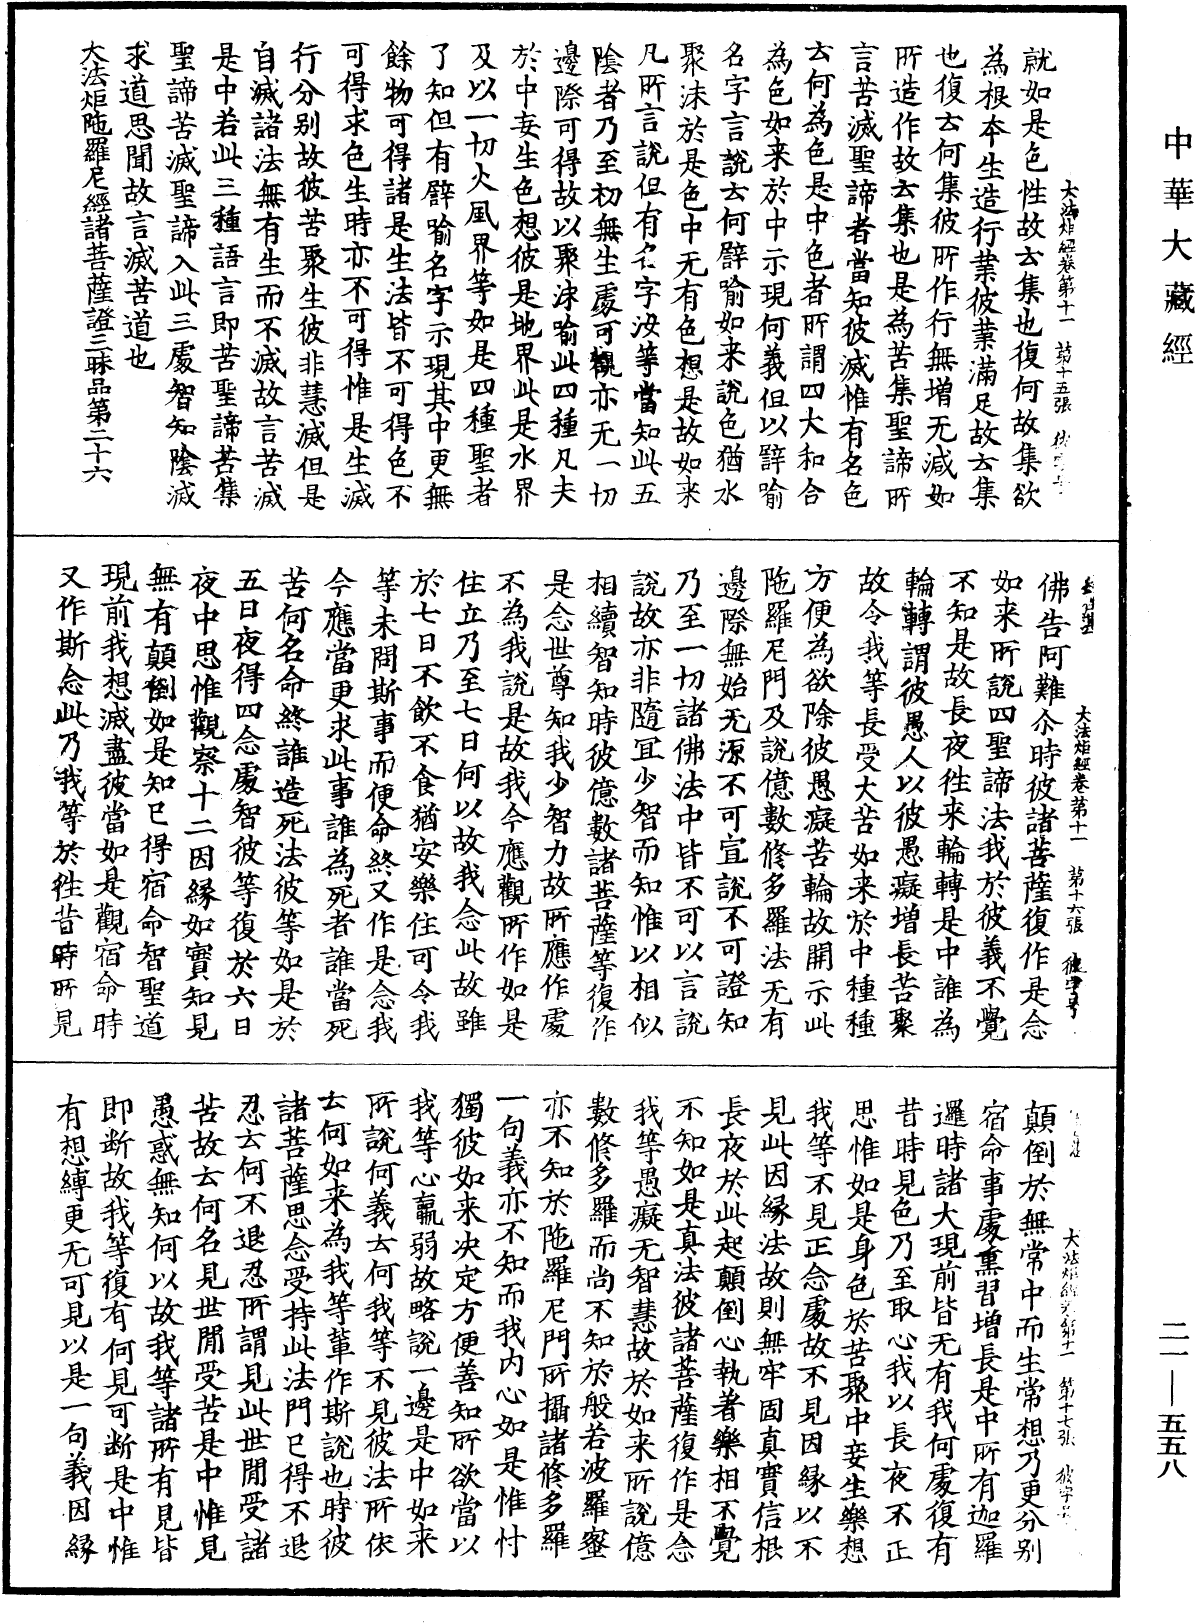 中華大藏經
大法炬經卷第十一 第十五張
就如是色性故去集也復何故集欲
為根本生造行業彼業滿足故去集
也復去何集彼所作行無增无減如
所造作故去集也是為苦集聖諦所
言苦滅聖諦者當知彼滅惟有名色
去何為色是中色者所謂四大和合
為色如来於中示現何義但以辟喻
名字言說去何辟喻如来說色猶水
聚沫於是色中无有色想是故如来
凡所言說但有名字汝等當知此五
陰者乃至初無生處可觀亦无一切
邊際可得故以聚沫喻此四種凡夫
於中妄生色想彼是地界此是水界
及以一切火風界等如是四種聖者
了知但有辟喻名字示現其中更無
餘物可得諸是生法皆不可得色不
可得求色生時亦不可得惟是生滅
行分別故彼苦聚生彼非慧滅但是
自滅諸法無有生而不滅故言苦滅
是中若此三種語言即苦聖諦苦集
聖諦苦滅聖諦入此三處智知陰滅
求道思聞故言滅苦道也
大法炬陁羅尼經諸菩薩證三昧品第二十六
大法炬經卷第十一 第十六張
佛告阿難尒時彼諸菩薩復作是念
如来所說四聖諦法我於彼義不覺
不知是故長夜往来輪轉是中誰為
輪轉謂彼愚人以彼愚癡增長苦聚
故令我等長受大苦如来於中種種
方便為欲除彼愚癡苦輪故開示此
陁羅尼門及說億數修多羅法无有
邊際無始无源不可宣說不可證知
乃至一切諸佛法中皆不可以言說
說故亦非隨冝少智而知惟以相似
相續智知時彼億數諸菩薩等復作
是念世尊知我少智力故所應作處
不為我說是故我今應觀所作如是
住立乃至七日何以故我念此故雖
於七日不飲不食猶安樂住可令我
等未問斯事而便命終又作是念我
今應當更求此事誰為死者誰當死
苦何名命終誰造死法彼等如是於
五日夜得四念處智彼等復於六日
夜中思惟觀察十二因緣如實知見
無有顛倒如是知已得宿命智聖道
現前我想滅盡彼當如是觀宿命時
又作斯念此乃我等於往昔時所見
大法炬經卷第十一 第十七張
顛倒於無常中而生常想乃更分別
宿命事處熏習增長是中所有迦羅
邏時諸大現前皆无有我何處復有
昔時見色乃至取心我以長夜不正
思惟如是身色於苦聚中妄生樂想
我等不見正念處故不見因緣以不
見此因緣法故則無牢固真實信根
長夜於此起顛倒心執著樂相不覺
不知如是真法彼諸菩薩復作是念
我等愚癡无智慧故於如来所說億
數修多羅而尚不知於般若波羅蜜
亦不知於陁羅尼門所攝諸修多羅
一句義亦不知而我内心如是惟忖
獨彼如来決定方便善知所欲當以
我等心羸弱故略說一邊是中如来
所說何義去何我等不見彼法所依
去何如来為我等輩作斯說也時彼
諸菩薩思念受持此法門已得不退
忍去何不退忍所謂見此世閒受諸
苦故去何名見世閒受苦是中惟見
愚惑無知何以故我等諸所有見皆
即断故我等復有何見可断是中惟
有想縛更无可見以是一句義因緣
二一—五五八